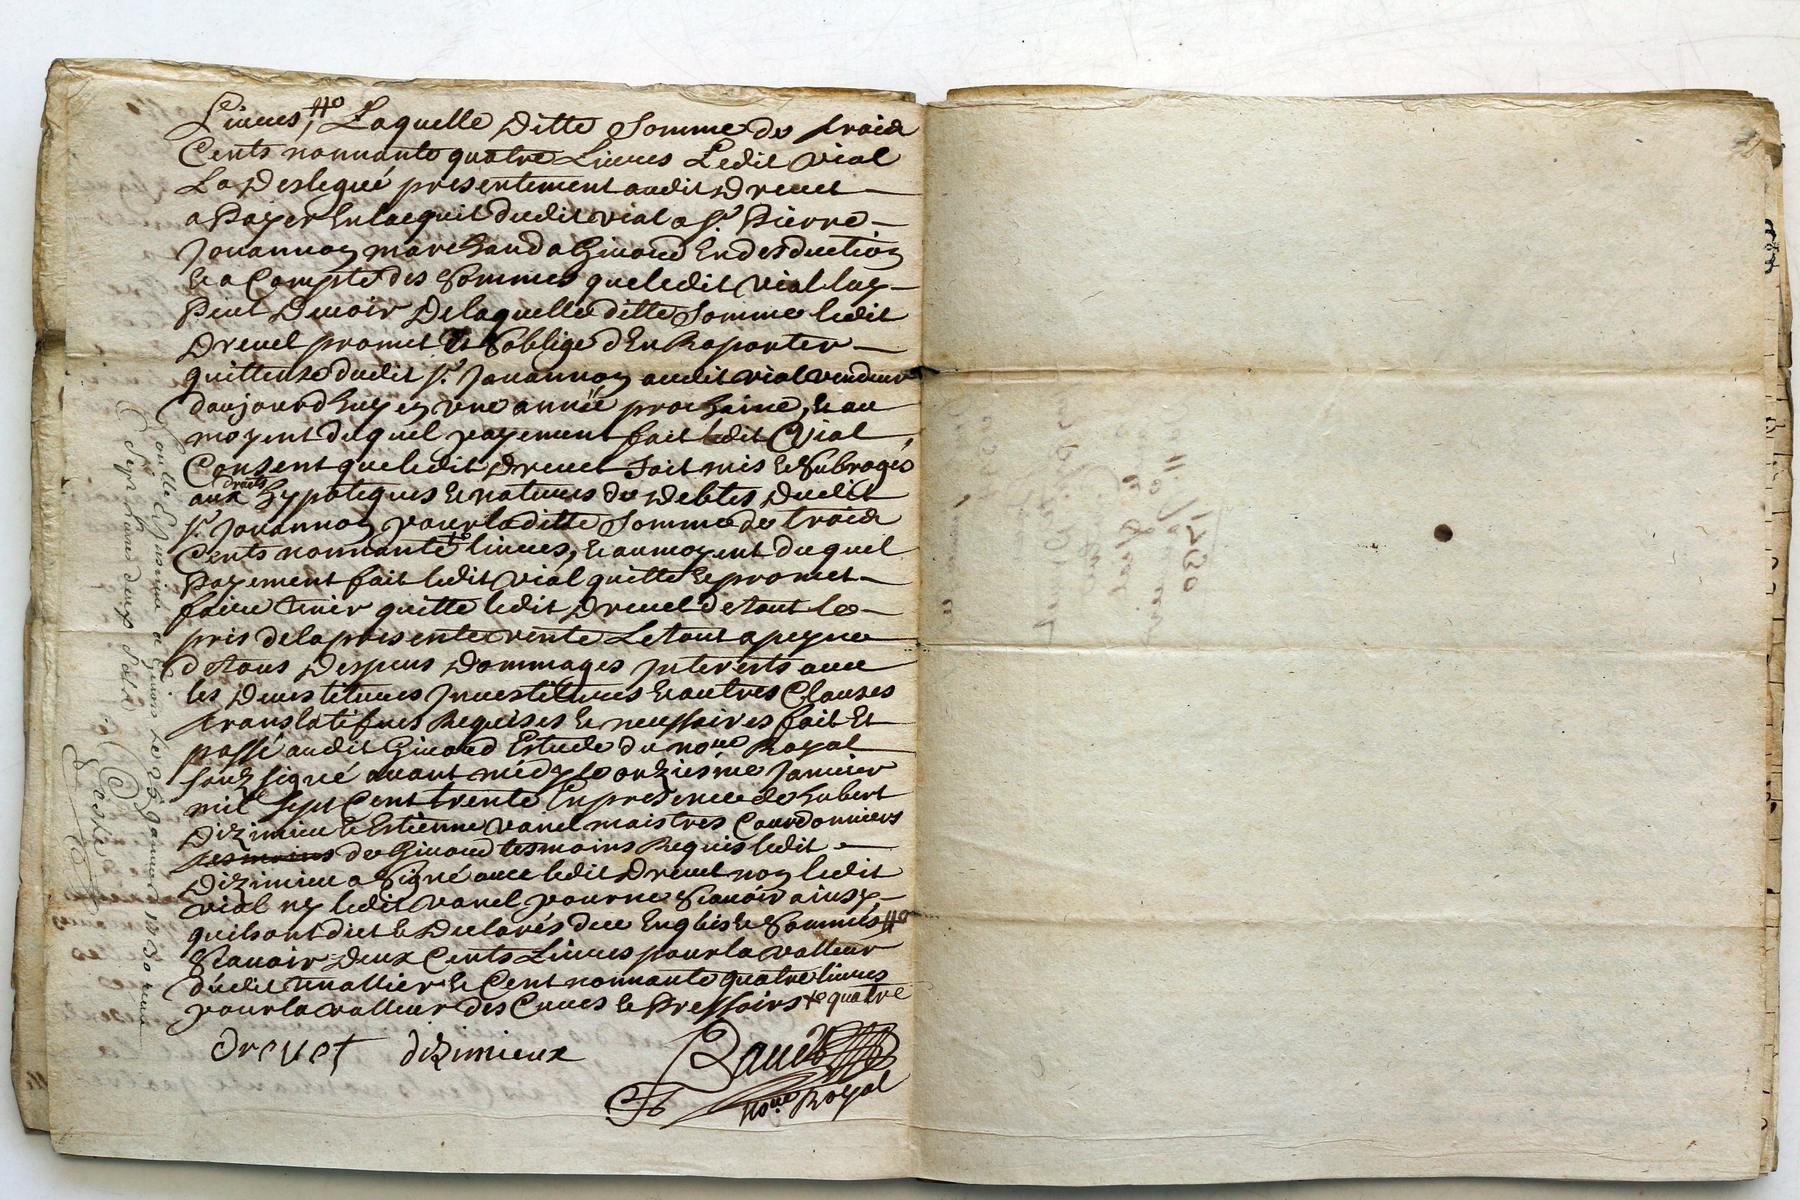 Liures, ## Laquelle ditte somme de trois
Cents nonnante quatre Liures Ledit vial
La deslegué presentement audit dreuet
a payer en lacquit dudit vial a sr. Pierre
Jouannon marchand a Giuord en desduction
et a Compte des sommes que ledit vial luy
peut deuoir de laquelle ditte somme ledit
dreuet promet et soblige d'en Raporter
quittense dudit sr. Jouannon audit vial vendeur
daujourdhuy en vne année prochaine, et au
moyent duquel payement fait ledit vial,
Consent que ledit dreuet soit mis et subrogé
aux droits hypoteques et natures de debtes dudit
sr. Jouannon pour la ditte somme de trois
Cents nonnante +e liures, et au moyent duquel
payement fait ledit vial quitte et promet
faire tenir quitte ledit dreuet de tout le
pris de la presente vente Le tout a peyne
de tous despens dommages interests auec
les deuestitures inuestitures et autres Clauses
translatifues Requises et necessaires fait et
passé audit Giuord Estude du nore Royal
souzsigné auant midy le onziesme januier
mil sept Cent trente En presence de hubert
dizimieu et Estienne vanel maistres Courdonniers
tesmoins de Giuord tesmoins Requis ledit
dizimieu a signé auec ledit dreuet non ledit
vial ny ledit vanel pour ne scauoir ainsy
quils ont dict et declarés due Enqüis et sommés ##
scauoir deux Cents Liures pour la valleur
dudit tenallier et Cent nonnante quatre liures
pour la valleur des Cuues et Pressoirs +e quatre
drevet dizimieux
nore Royal
Giuors Le 25 januier 1730 receu
sept liures deux sols
1730